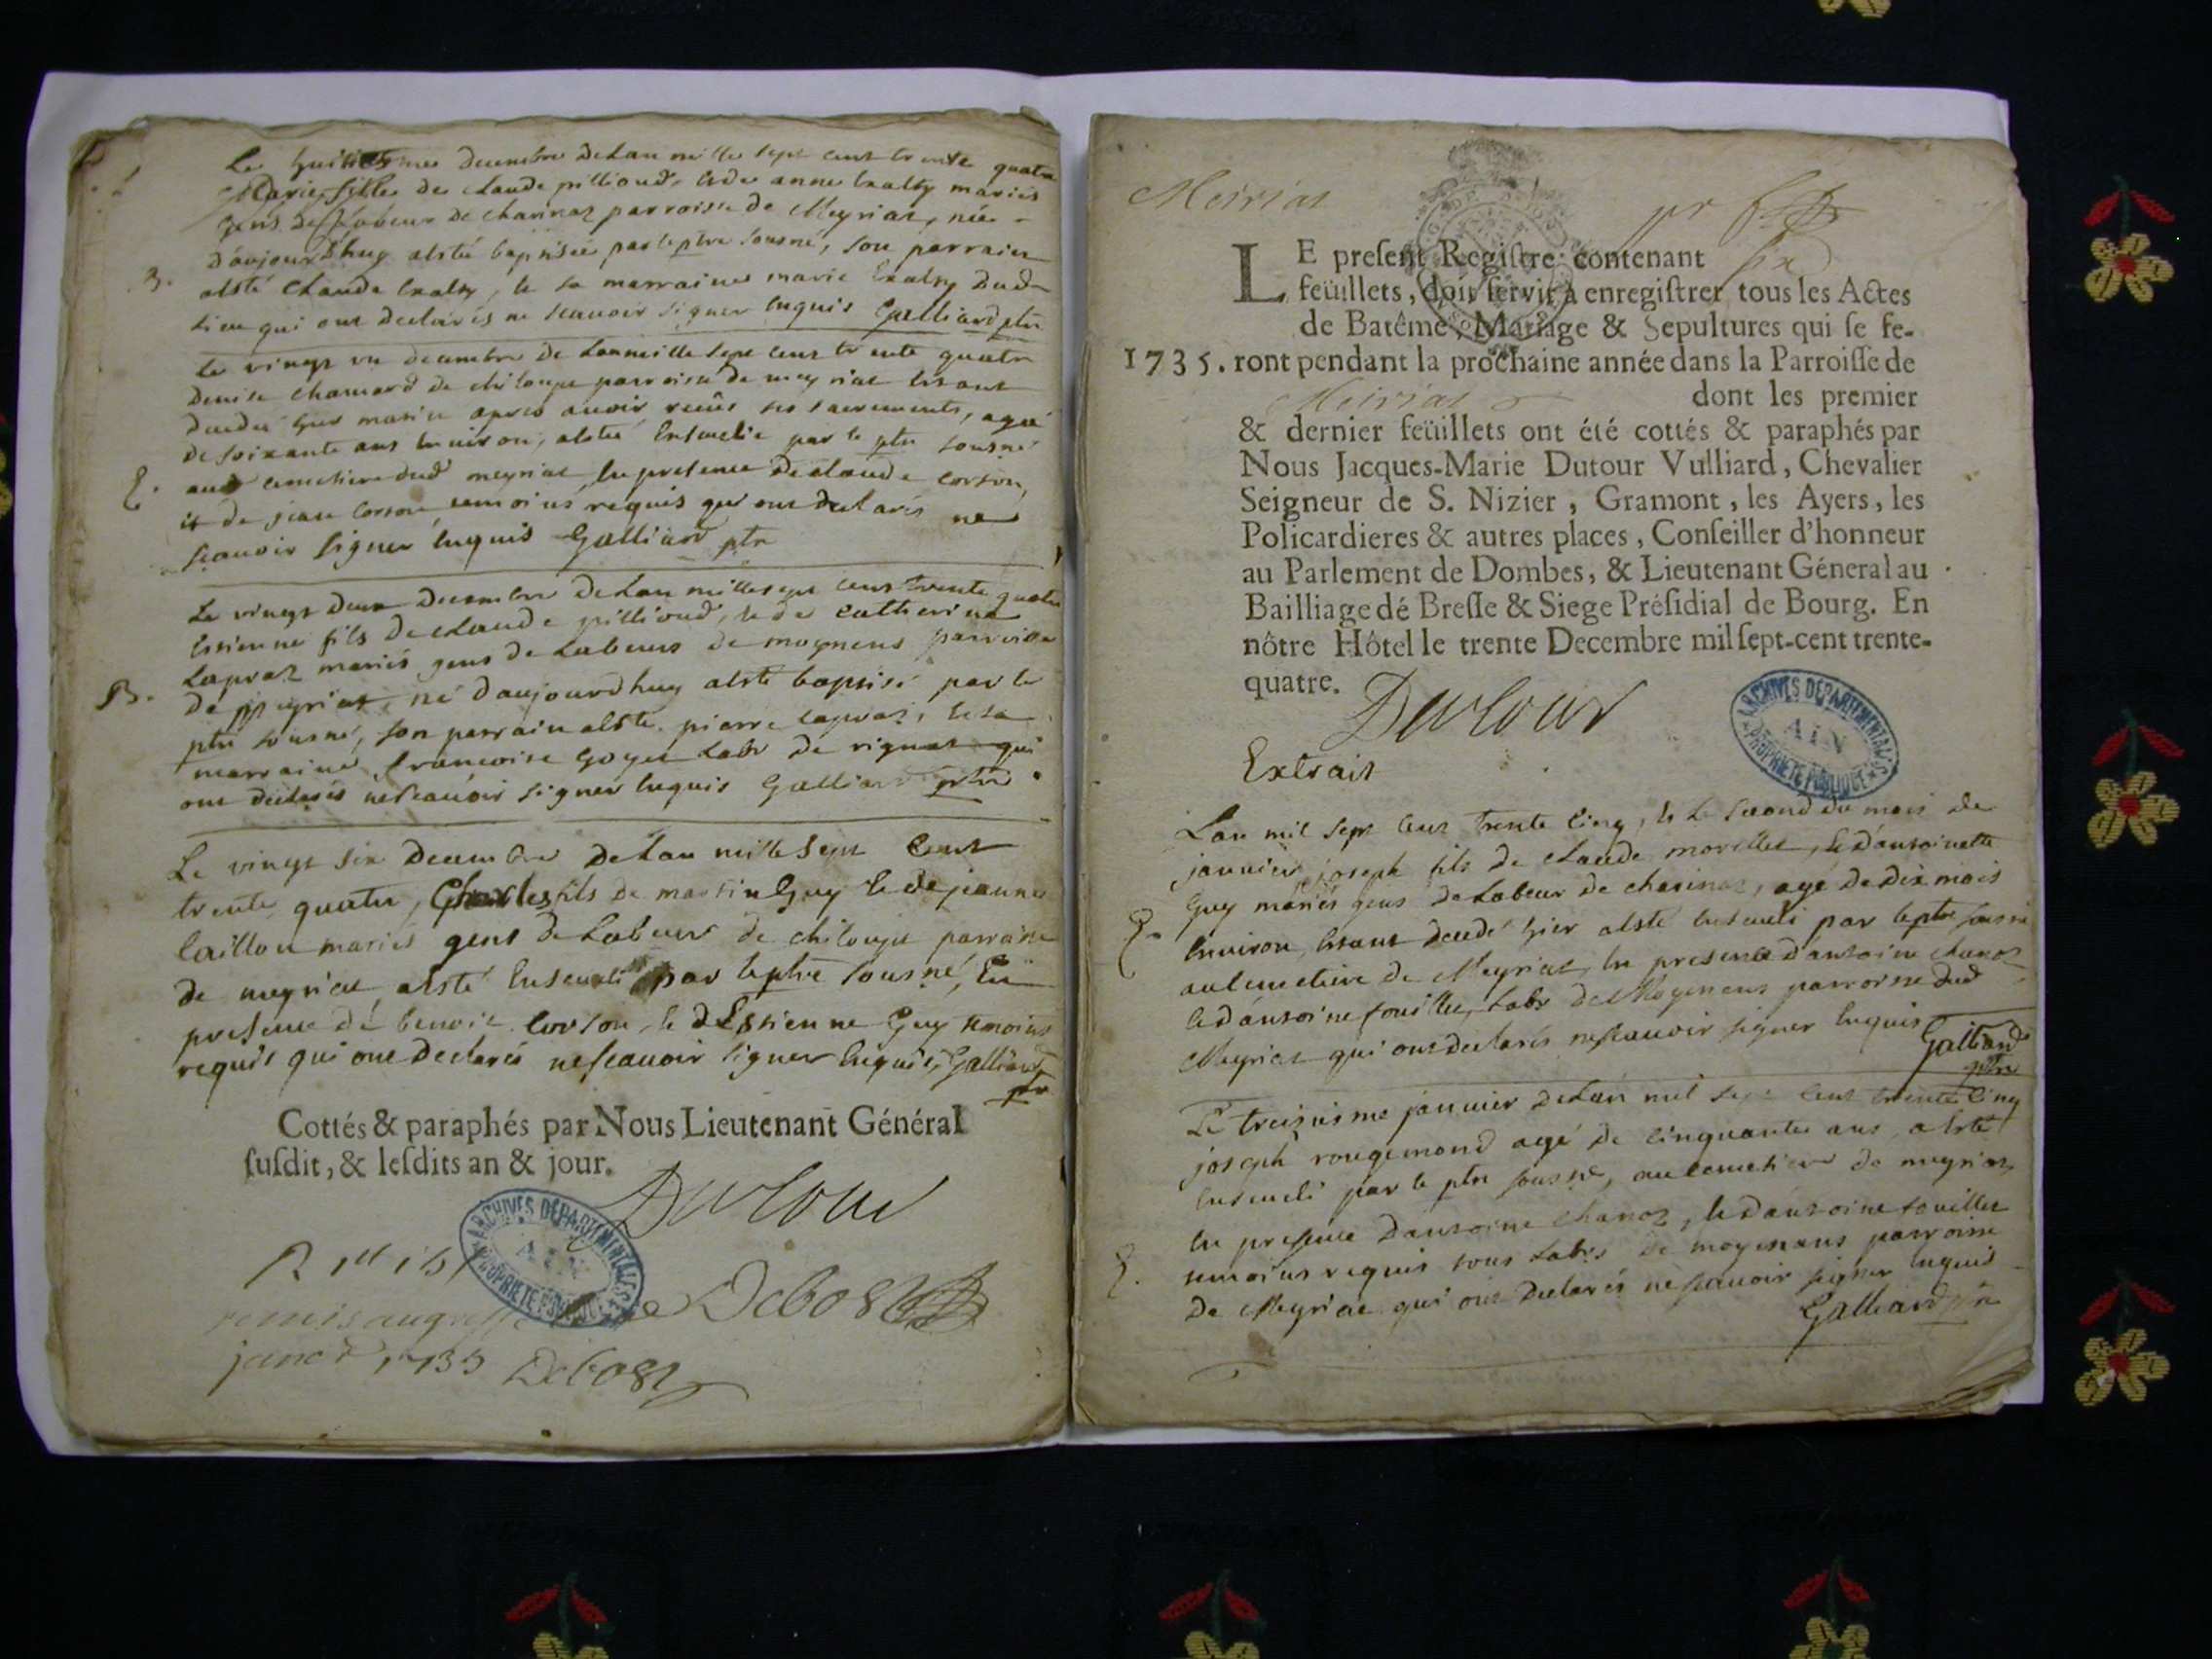 Le huitiesme decembre de Lan mille sept cent trente quatre
Marie fille de claude pillioud, et de anne Exaltz mariés
gens de Labeur de charinaz parroisse de Meyriat, née
d'aujourdhuy at esté baptisée par le ptre sousné, son parrain
at esté claude Exaltz, et sa marraine marie Exaltz dud
lieu qui ont declarés ne scauoir signer enquis Galliard ptre
B.
Le vingt un decembre de Lan mille sept cent trente quatre
denise chanard de chiloup parroisse de meyriat estant
decedée hier matin apres auoir receüe ses sacrements, agée
de soixante ans enuiron, at esté Enseuelie par le ptre sousné
E. au cemetiere dud meyriat, En presence de claude corson,
et de jean corson temoins requis qui ont declarés ne
scauoir signer enquis Galliard ptre
Le vingt deux decembre de Lan mille sept cent trente quatre
Estienne fils de claude pillioud, et de catherine
Lapraz mariés gens de Labeurs de moynens parroisse
B. de Meyriat, né daujourdhuy at esté baptisé par le
ptre sousné, son parrain at esté pierre Lapraz, et sa
marraine francoise goyet Labr de rignat qui
ont declarés ne scauoir signer enquis Galliard ptre
Le vingt six decembre de Lan mille sept Cent
trente quatre, Charles fils de martin Guy et de jeanne
Caillon mariés gens de Labeur de chiloup parroisse
de meyriat at esté Enseueli par le ptre sousné, En
presence de benoit Corson, et d'Estienne Guy temoins
requis qui ont declarés ne scauoir signer Enquis, Galliard
ptre
Cottés & paraphés par Nous Lieutenant Général
ſuſdit, & leſdits an & jour.
Dutour
ARCHIVES DEPARTEMENTALES
AIN
PROPRIETE PUBLIQUE
remis au greffe
1735
Meirias
LE preſent Regiſtre contenant six
feüillets, doit ſervir à enregiſtrer tous les Actes
de Batême, Mariage & Sepultures qui ſe fe-
1735. ront pendant la prochaine année dans la Parroiſſe de
Meirias dont les premier
& dernier feüillets ont été cottés & paraphés par
Nous Jacques-Marie Dutour Vulliard, Chevalier
Seigneur de S. Nizier, Gramont, les Ayers, les
Policardieres & autres places, Conſeiller d'honneur
au Parlement de Dombes, & Lieutenant Géneral au
Bailliage dé Breſſe & Siege Préſidial de Bourg. En
nôtre Hôtel le trente Decembre mil ſept-cent trente-
quatre. Dutour
ARCHIVES DEPARTEMENTALES
AIN
PROPRIETE PUBLIQUE
Extrait
Lan mil sept cent trente cinq, et le second du mois de
januier joseph fils de claude morellet, et d'antoinette
Guy mariés gens de Labeur de charinaz, agé de dix mois
E. Enuiron, Estant decedé hier at esté enseueli par le ptre sousné
au cemetiere de Meyriat, En presence d'antoine chanoz
et d'antoine fouillet, Labr de Moyenens parroisse dud
Meyriat qui ont declarés ne scauoir signer Enquis Galliard
ptre
Le treizieme januier de Lan mil sept cent trente cinq
joseph rougemond agé de cinquante ans, at esté
enseueli par le ptre sousné, au cemetiere de meyriat
En presence d'antoine chanoz, et d'antoine fouillet
E. temoins requis tous Labrs de moyenens parroisse
de Meyriat qui ont declarés ne scauoir signer enquis
Galliard ptre